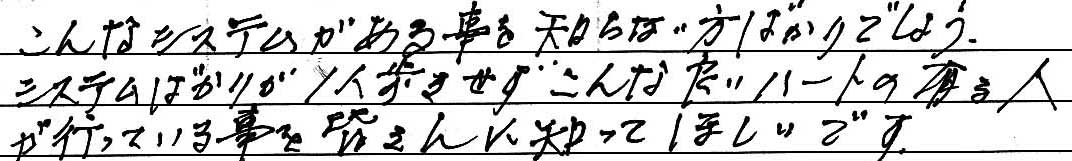 こんなシステムがある事を知らない方ばかりでしょう。
システムばかりが1人歩きせずこんな広いハートの有る人
が行っている事を皆さんに知ってほしいです。